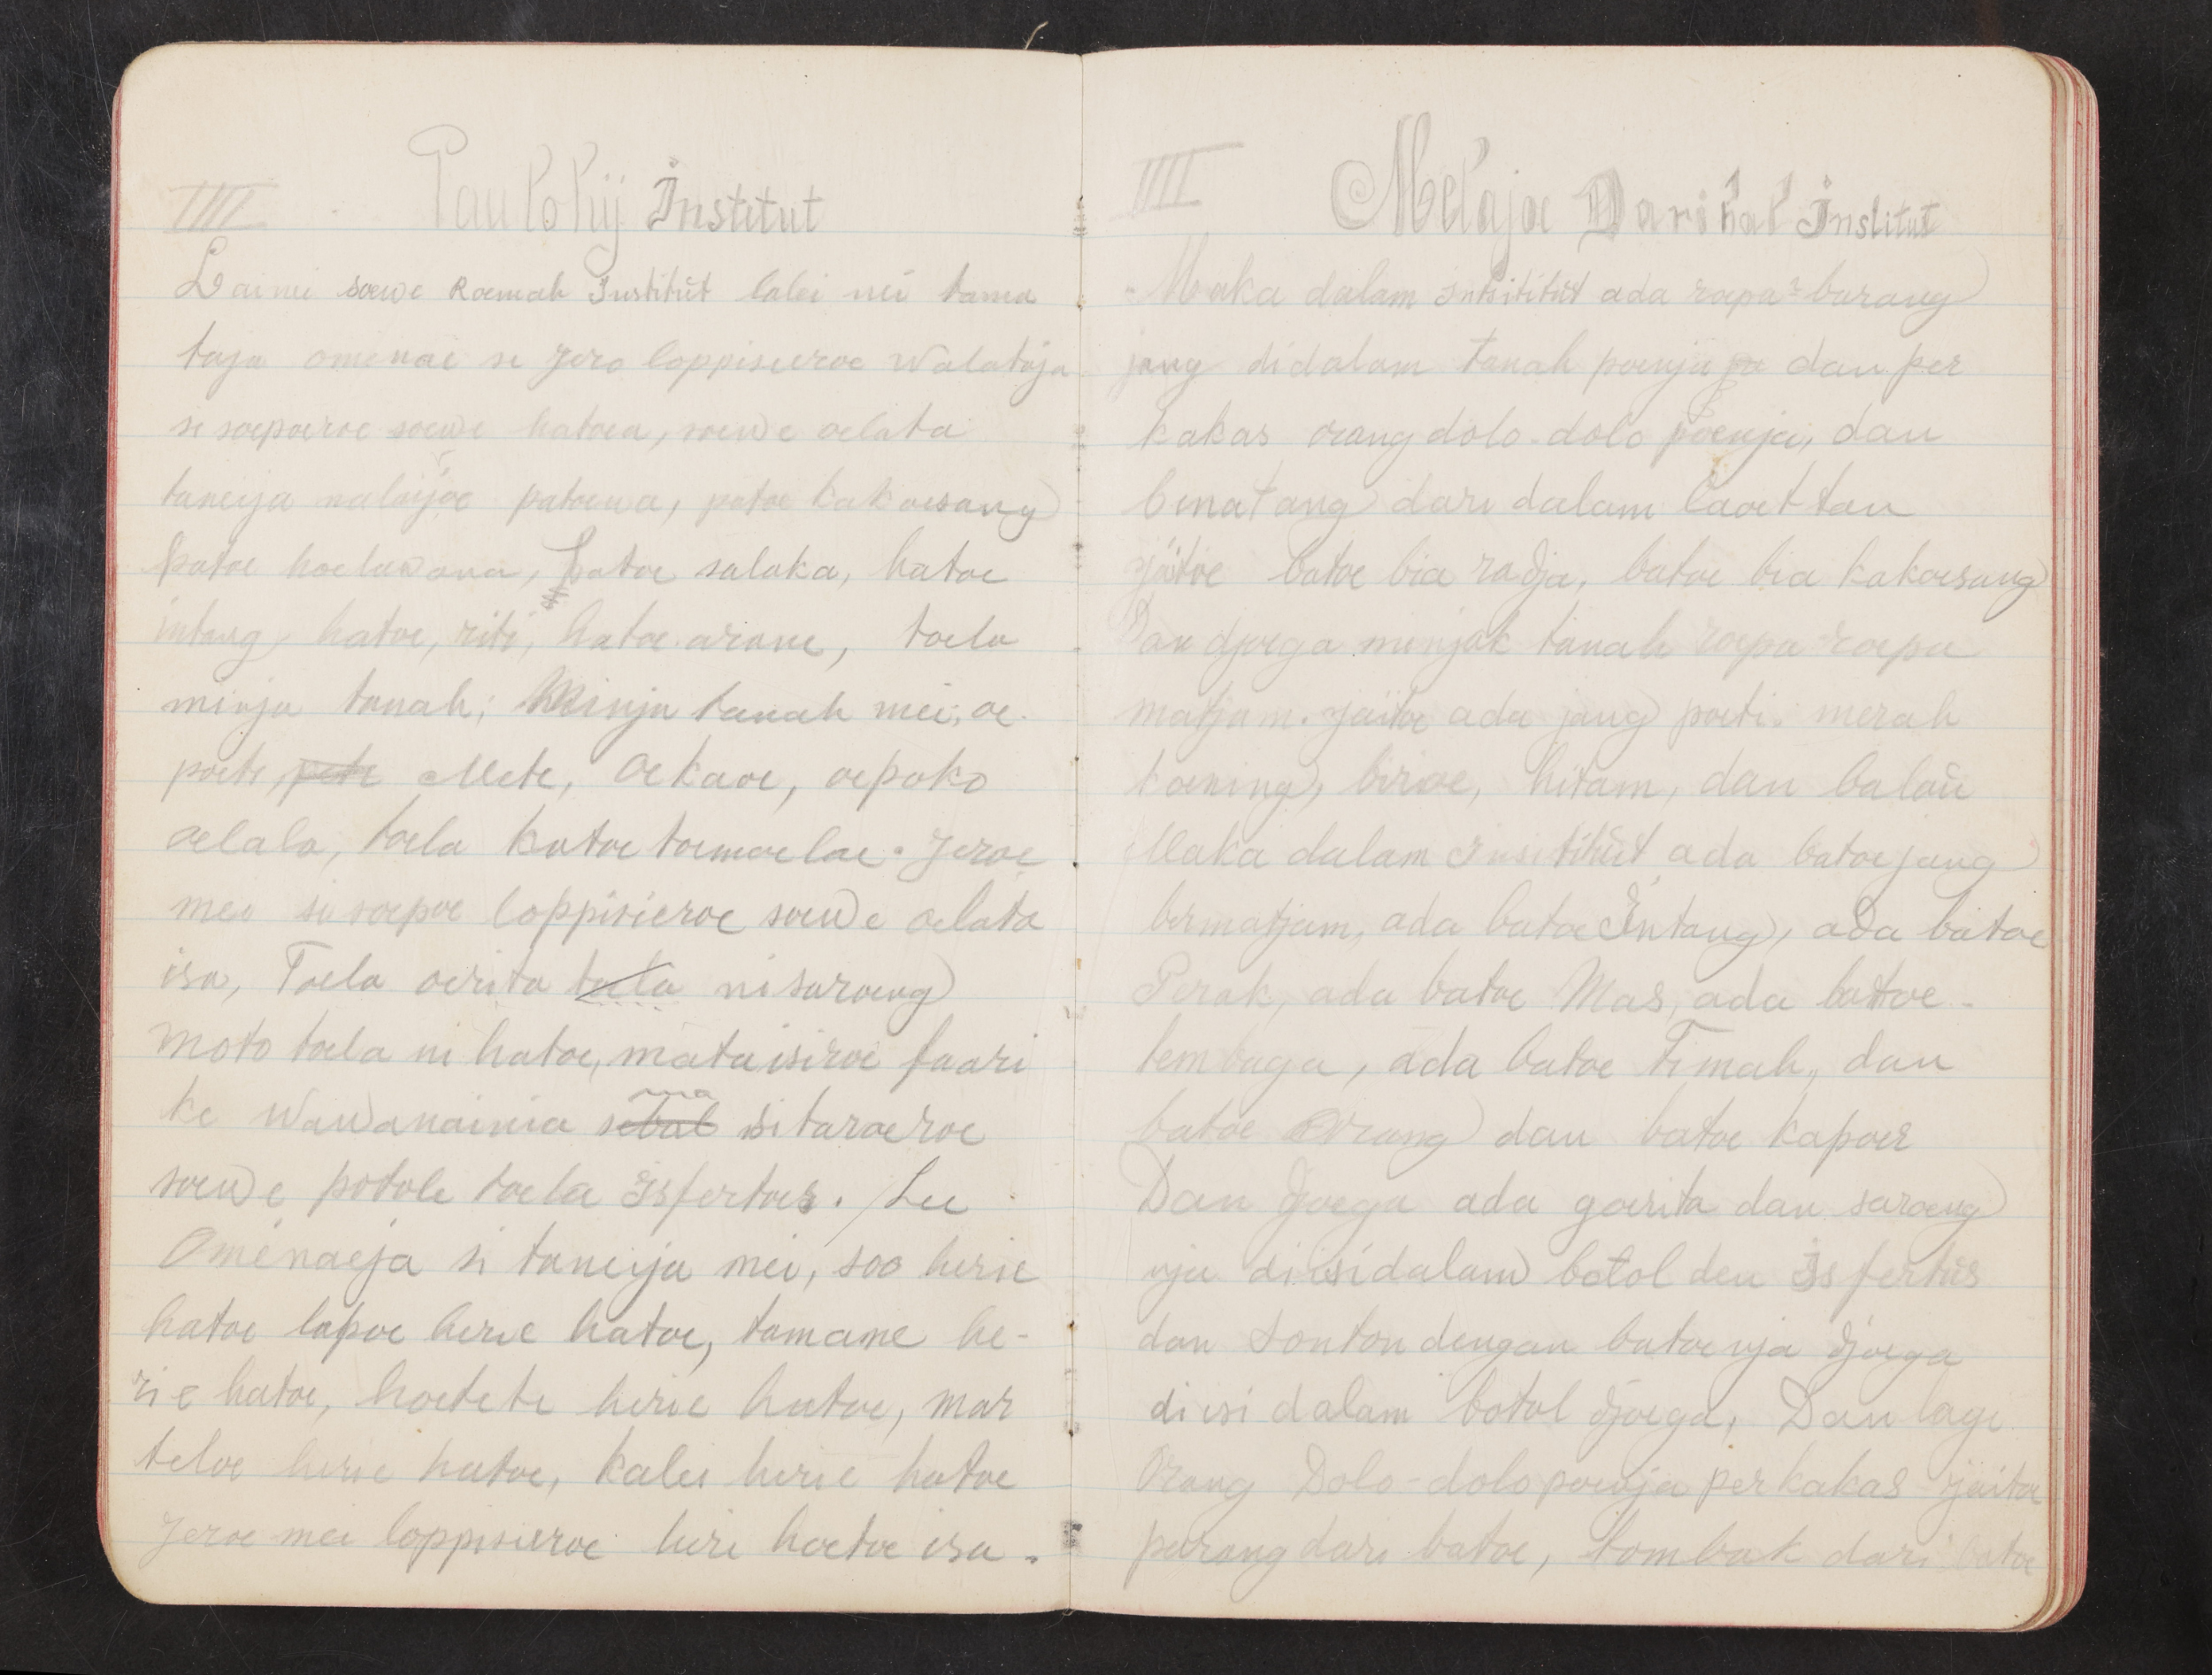 IIII Paulohij Institut
Lainii soewe Roemah Institut lalei nii tama
taja omenai si jero loppisieroe walataja
si soepoeroe soewe hatoea, soewe oelata
taneija patoewa, patoe kakoesang
patoe hoelawana, hatoe salaka, hatoe
intang, hatoe, riti, hatoe arane, toela
minja tanah; Minja tanah mei, oe
poete, pete Mete, Oekaoe, oepoko
oelala, toela hatoe toemoelae. Jeroe
mei si soepoe loppisieroe soewe oelata
isa, Toela oerita tula nisaroeng
moto toela ni hatoe, mataisiroe faari
ke wawanainia sebab ma isitaroeroe
soewe potole toela Isfertoes. Lee
Omenaeja si taneija mei, soo herie
hatoe lapoe herie hatoe, tamane he-
rie hatoe, hoetete herie hatoe, mar
teloe herie hatoe, kalei herie hatoe
Jeroe mei loppisieroe heri hoetoe isa.
IIII Melajoe Dari hal Institut
Maka dalam Intsititut ada roepa² barang
jang didalam tanah poenja dan per
kakas orang dolo-dolo poenja, dan
binatang dari dalam laoettan
jaitoe batoe bia radja, batoe bia kakoesang
Dan djoega minjak tanah roepa roepa
matjam. jäitoe ada jang poeti. merah
koening, biroe, hitam, dan balaü
Maka dalam Insititut ada batoe jang
bermatjam, ada batoe Intang, ada batoe
Perak, ada batoe Mas, ada battoe-
tembaga, ada batoe Timah, dan
batoe Orang dan batoe kapoer
Dan djoega ada goerita dan saroeng
nja di isi dalam botol den Isfertus
dan sonton dengan batoe nja djoega
di isi dalam botol djoega, Dan lagi
Orang Dolo-dolo poenja perkakas jaitoe
parang dari batoe, tombak dari batoe